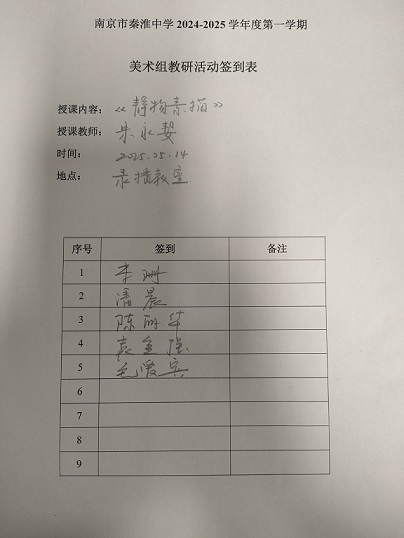 南京市秦淮中学 2024-2025 学年度第一学期
美术组教研活动签到表
授课内容：《静物素描》
授课教师：朱永
时间：2025.25.14
地点：录播教室
序号 签到 备注
1 李珊
2 潘晨
3 陈丽华
4 袁金强
5 毛爱宾
6
7
8
9